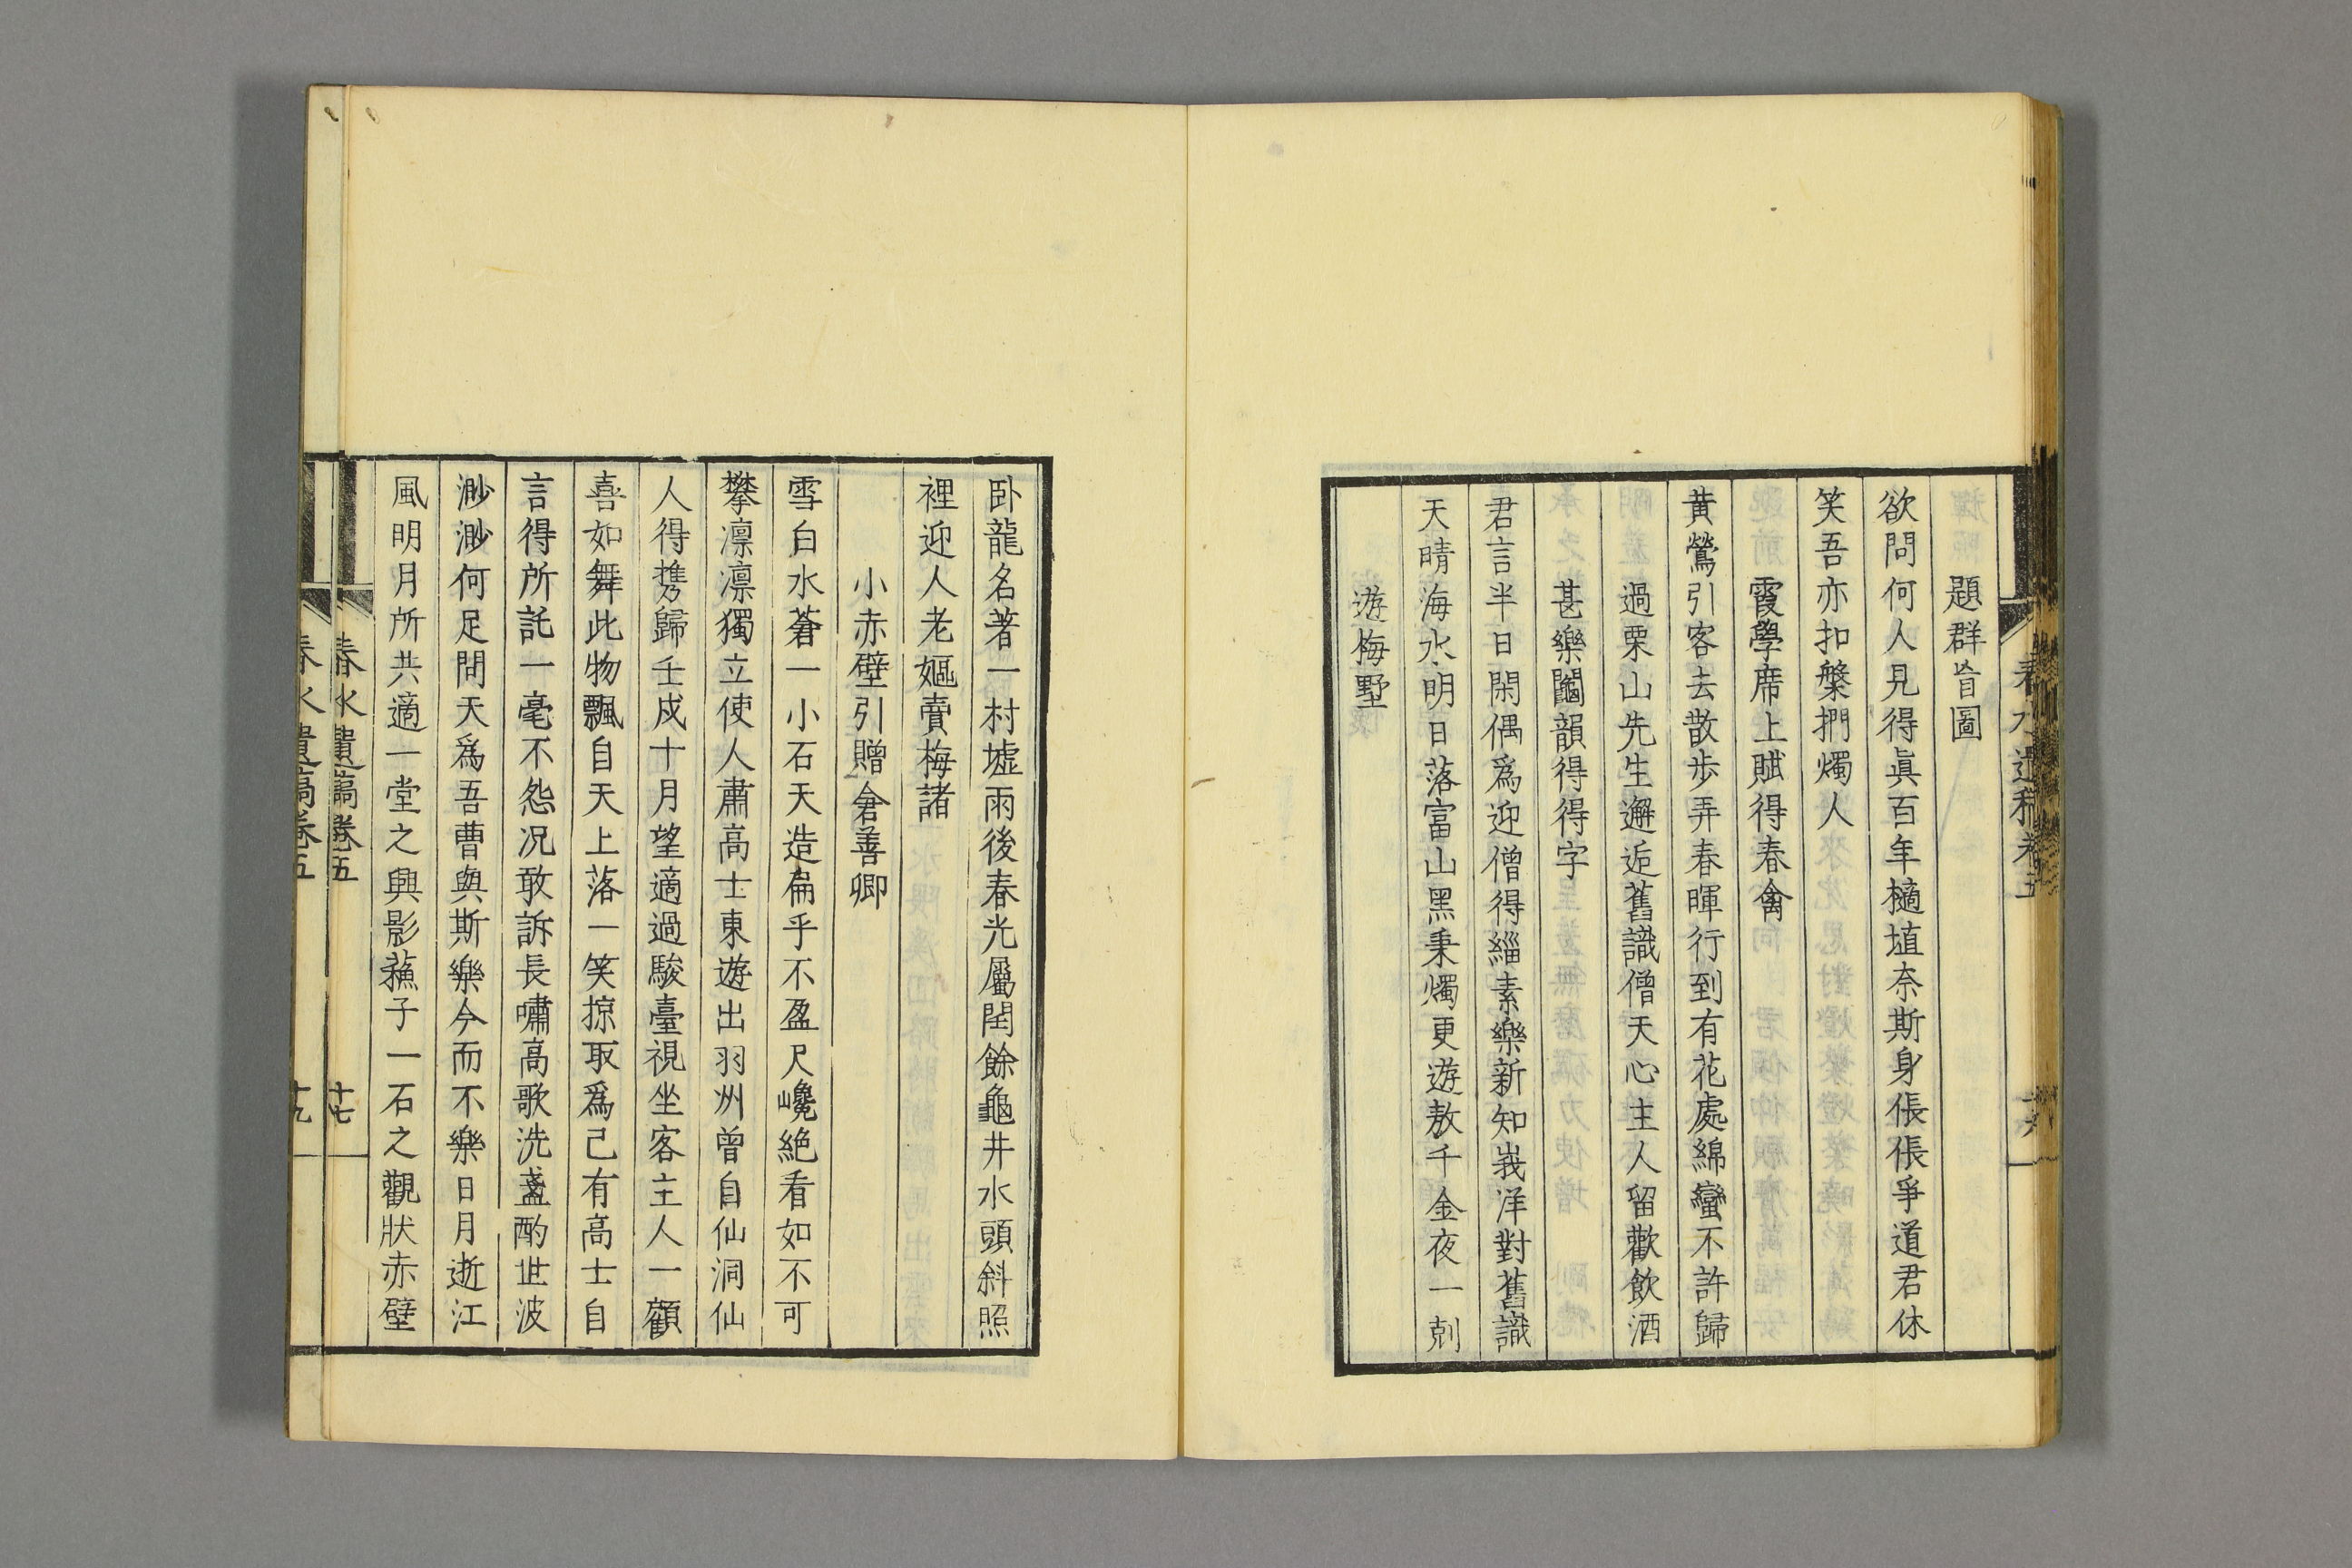 春水遺稿卷五
十六
題群盲圖
欲問何人見得眞百年擿埴奈斯身倀倀爭道君休
笑吾亦扣槃捫燭人
霞學席上賦得春禽
黄鶯引客去散步弄春暉行到有花處綿蠻不許歸
過栗山先生邂逅舊識僧天心主人留歡飲酒
甚樂鬮韻得得字
君言半日閑偶爲迎僧得緇素樂新知峩洋對舊識
天晴海水明日落富山黑秉燭更遊敖千金夜一剋
遊梅墅
卧龍名著一村墟雨後春光屬閏餘龜井水頭斜照
裡迎人老嫗賣梅諸
小赤壁引贈倉善卿
雪白水蒼一小石天造扁乎不盈尺巉絶看如不可
攀凛凛獨立使人肅高士東遊出羽州曽自仙洞仙
人得携歸壬戍十月望適過駿臺視坐客主人一顧
喜如舞此物飄自天上落一笑掠取爲己有高士自
言得所託一毫不怨况敢訴長嘯高歌洗盞酌世波
渺渺何足問天爲吾曹與斯樂今而不樂日月逝江
風明月所共適一堂之興影蘓子一石之觀狀赤壁
春水遺稿卷五
十七
春水遺稿卷五
十九